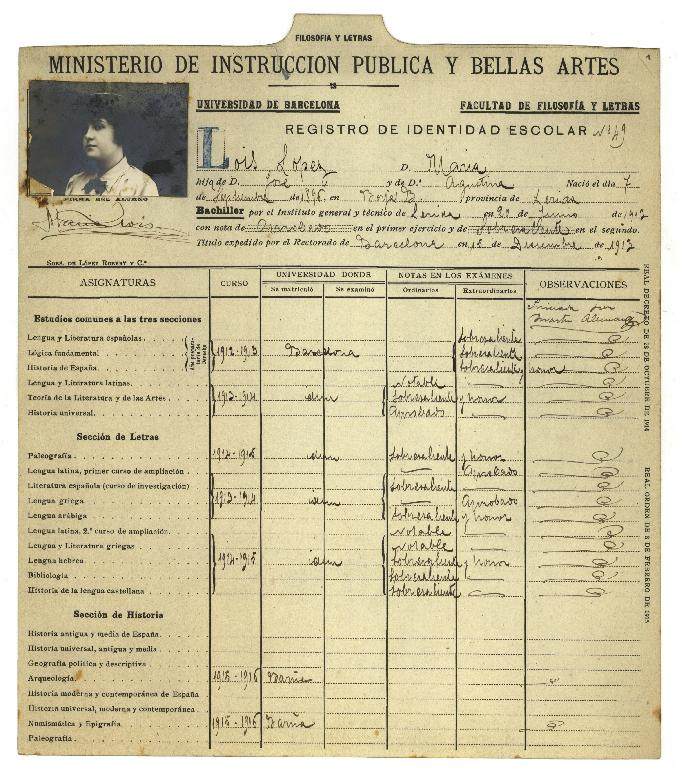 FILOSOFIA Y LETRAS
MINISTERIO DE INSTRUCCION PUBLICA Y BELLAS ARTES
UNIVERSIDAD DE BARCELONA
FACULTAD DE FILOSOFÍA Y LETRAS
REGISTRO DE IDENTIDAD ESCOLAR
Lois López D. Maria
hija de D. José y de D.ª Agustina Nació el día 7
de Septiembre de 1896, en Borja B. provincia de Lérida
Bachiller por el Instituto general y técnico de Lérida en 20 de Junio de 1912
con nota de Aprobado en el primer ejercicio y de Sobresaliente en el segundo.
Título expedido por el Rectorado de Barcelona en 18 de Diciembre de 1912
FIRMA DEL ALUMNO
SOBS. DE LÓPEZ ROBERT Y C.ª
ASIGNATURAS CURSO UNIVERSIDAD DONDE NOTAS EN LOS EXÁMENES OBSERVACIONES
Se matriculó Se examinó Ordinarios Extraordinarios
Estudios comunes a las tres secciones
Lengua y Literatura españolas Sobresaliente
Lógica fundamental 1912-1913 Barcelona Sobresaliente
Historia de España Sobresaliente y honor
Lengua y Literatura latinas Notable
Teoría de la Literatura y de las Artes idem Sobresaliente y honor
Historia universal Aprobado
Sección de Letras
Paleografía 1914-1915 idem Sobresaliente y honor
Lengua latina, primer curso de ampliación Aprobado
Literatura española (curso de investigación) Sobresaliente
Lengua griega 1913-1914 idem Aprobado
Lengua arábiga Sobresaliente y honor
Lengua latina, 2.º curso de ampliación Notable
Lengua y Literatura griegas Notable
Lengua hebrea 1914-1915 idem Sobresaliente y honor
Bibliología Sobresaliente
Historia de la lengua castellana Sobresaliente
Sección de Historia
Historia antigua y media de España
Historia universal, antigua y media
Geografía política y descriptiva
Arqueología 1915-1916 Barña
Historia moderna y contemporánea de España
Historia universal, moderna y contemporánea
Numismática y Epigrafía 1915-1916 Barña
Paleografía
REAL DECRETO DE 18 DE OCTUBRE DE 1914
REAL ORDEN DE 2 DE FEBRERO DE 1915